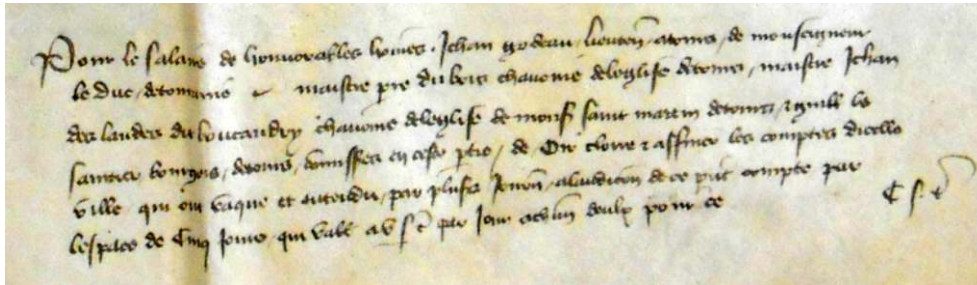 Pour le salaire de honnorables hommes Jehan godeau lieuten a tours de monseigneur
le duc de touraine maistre pre du bois chanoine de leglise de tours maistre Jehan
des landes du boucaudry chanoine de leglise de monsr saint martin de tours guille le
bourgois de tours commissaires en ceste ptie de Oir clorre et affiner les comptes dicelle
ville qui ont vaque et entendu par plusrs Journ a laudicion de ce pnt compte par
lespace de Cinq Jours qui vale a xv s t par Jour a chun deulx pour ce C s t